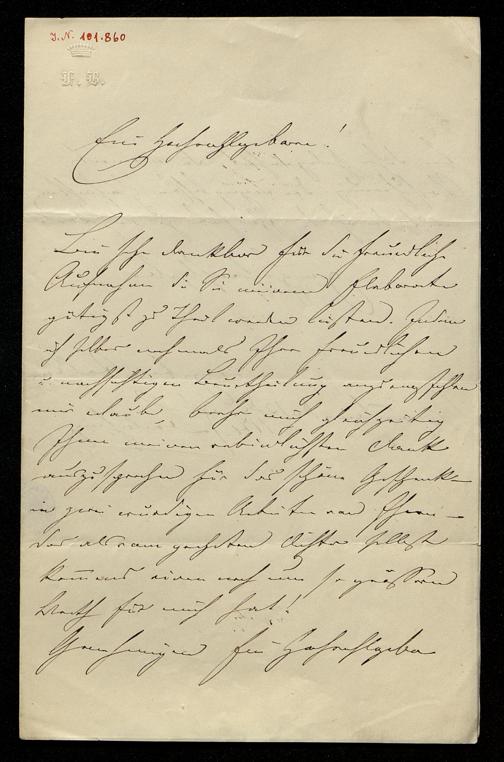 J.N. 191.860
F. B.
Euer Hochwohlgeboren!
Bin sehr dankbar für die freundliche
Aufnahme die Sie meinem Elaborate
gütigst zu Theil werden liessen. Indem
ich selber nochmals Ihrer freundlichen
u nachsichtigen Beurtheilung anzuempfehlen
mir erlaube, beehre mich gleichzeitig
Ihnen meinen verbindlichsten Dank
auszusprechen für das schöne Geschenk
zwei Arbeiten von Ihnen
das als vom Dichter selbst
kommend einen noch um so grössern
Werth für mich hat!
Genehmigen Euer Hochwohlgebo